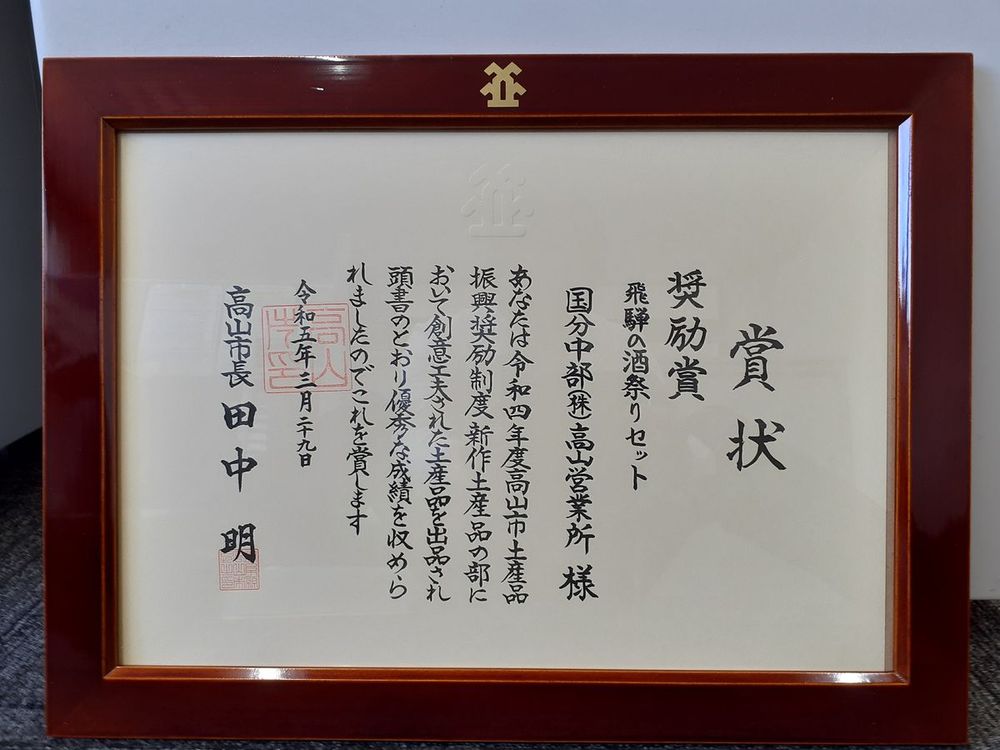 賞状
奨励賞
飛騨の酒祭りセット
国分中部(株)高山営業所 様
あなたは令和四年度高山市土産品
振興奨励制度新作土産品の部に
おいて創意工夫された土産品を出品され
頭書のとおり優秀な成績を収めら
れましたのでこれを賞します
令和五年三月二十九日
高山市長 田中 明